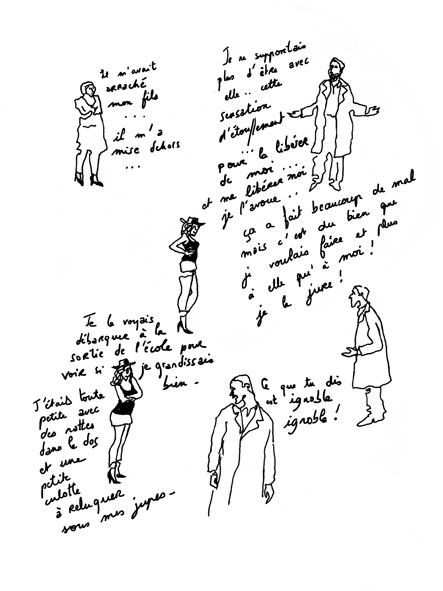 Il m'avait
arraché
mon fils
....
il m'a
mise dehors
...
Je ne supportais
plus d'être avec
elle.. cette
sensation
d'étouffement
pour la libérer
de moi...
et me libérer moi
je l'avoue..
ça a fait beaucoup de mal
mais c'est du bien que
je voulais faire et plus
à elle qu'à moi !
je le jure !
Je le voyais
débarquer à la
sortie de l'école pour
voir si je grandissais
bien -
J'étais toute
petite avec
des nattes
dans le dos
et une
petite
culotte
à reluquer
sous mes jupes -
Ce que tu dis
est ignoble
ignoble !